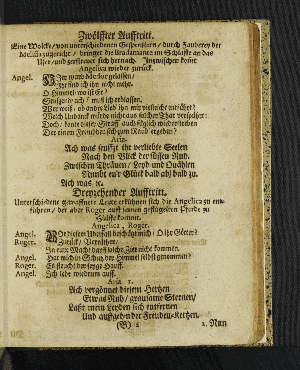 Zwölffter Aufftritt.
Eine Wolcke / von unterschiedenen Gespenstern / durch Zauberey der
Melissa zugericht / bringet die Bradamante im Schlaffe an das
Ufer / und zerstreuet sich hernach. Inzwischen kömt
Angelica wieder zurück.
Angel. Hier ward Medor gelassen /
Jetzt find ich ihn nicht mehr.
O Himmel wo ist er?
Seufzend ach / muß ich erblassen.
Wer weiß / ob andre Lieb ihn mir vielleicht entführt?
Welch Undanck würde nicht aus solcher That verspühret:
Doch / deine Straff auch
Der einem Frembden sich zum Raub ergeben?
Aria.
Ach was seuffzt ihr verliebte Seelen
Nach den Blick der süssen Ruh.
Zwischen Thränen / Leyd und Quählen
Nimbt eu'r Glück bald ab / bald zu.
Ach was ꝛc.
Dreyzehender Aufftritt.
Unterschiedene gewaffnete Leute erkühnen sich die Angelica zu ent-
führen / der aber Roger auff seinem geflügelten Pferde zu
Hülffe kommt.
Angelica, Roger.
Angel.
Roger. Zurück / Verräther /
In eurer Macht darff solche Zier nicht kommen.
Angel. Hat mich in Schutz der Himmel selbst genommen?
Roger.
Angel. Ich lebe wiedrum auff.
Aria 1.
Ach vergönnet diesem Hertzen
Etwas Ruh / grausame Sternen /
Laßt mein Leyden sich entfernen
Und außgehn der Freuden-Kertzen.
(B) 2 2. Nun